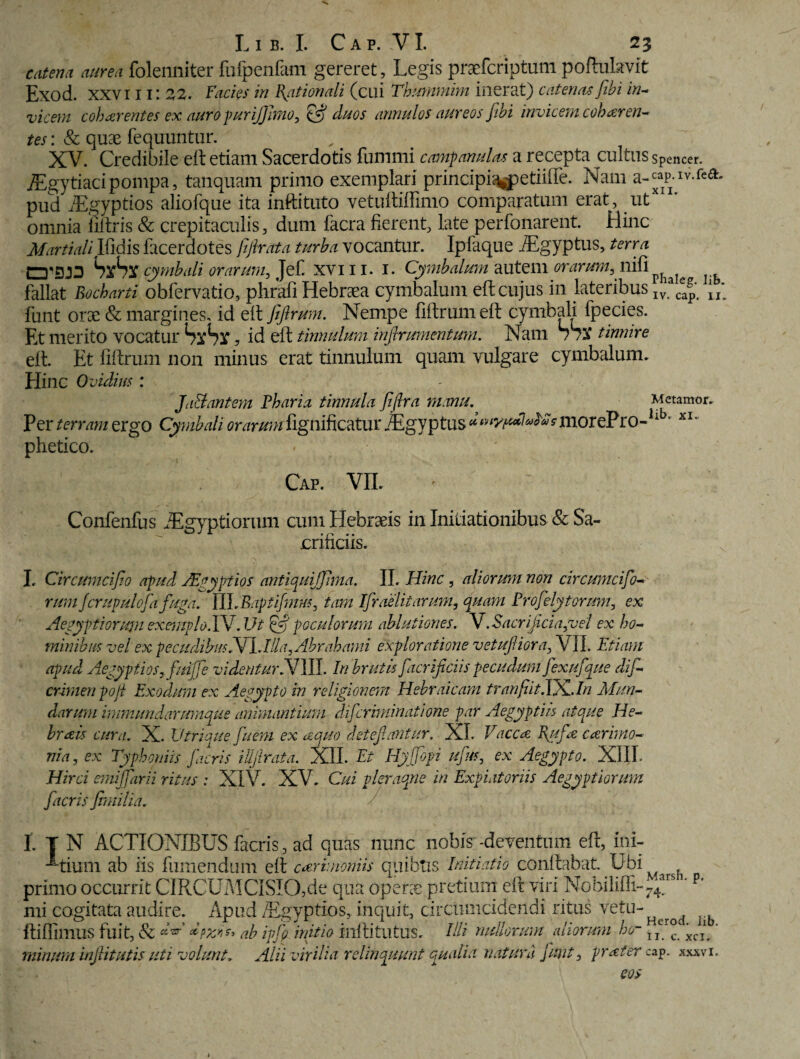 LIB. I. CAP. VI. 23
catena aurea folenniter fufpenfam gereret, Legis præfcriptum poftulavit
Exod. XXVIII: 22. Facies in Rationali (cui Thummim inerat) catenas fibi in-
vicem cohærentes ex auro puriffimo, & duos annulos aureos fibi invicem cohæren-
tes: & quæ fequuntur.
XV. Credibile eft etiam Sacerdotis fummi campanulas a recepta cultus Spencer.
Ægytiaci pompa, tanquam primo exemplari principia petiiffe. Nam a- cap. iv. fect.
pud Ægyptios aliofque ita inftituto vetuftiffimo comparatum erat, ut XII.
omnia fiftris & crepitaculis, dum facra fierent, late perfonarent. Hinc
Martiali Ifidis facerdotes fiftrata turba vocantur. Ipfaque Ægyptus, terra
צלצל כנפים cymbali orarum, Jef. XVIII. 1. Cymbalum autem orarum, nifi
fallat Bocharti obfervatio, phrafi Hebræa cymbalum eft cujus in lateribus Phaleg. lib.
funt oræ & margines, id eft fiftrum. Nempe fiftrum eft cymbali fpecies. iv. cap. ii.
Et merito vocatur צלצל, id eft tinnulum inftrumentum. Nam צלל tinnire
eft. Et fiftrum non minus erat tinnulum quam vulgare cymbalum.
Hinc Ovidius:
Jactantem Pharia tinnula fiftra manu. Metamor.
Per terram ergo Cymbali orarum fignificatur Ægyptus morePro- lib. xi.
phetico.
CAP. VII.
Confenfus Ægyptiorum cum Hebræis in Initiationibus & Sa-
crificiis.
I. Circumcifio apud Ægyptios antiquiffima. II. Hinc, aliorum non circumcifo-
rum fcrupulofa fuga. III. Baptifmus, tam Ifraëlitarum, quam Profelytorum, ex
Aegyptiorum exemplo. IV. Ut & poculorum ablutiones. V. Sacrificia, vel ex ho-
minibus vel ex pecudibus. VI. Illa, Abrahami exploratione vetuftiora, VII. Etiam
apud Aegyptios, fuiffe videntur. VIII. In brutis facrificiis pecudum fexufque dif-
crimen poft Exodum ex Aegypto in religionem Hebraicam tranfiit. IX. In Mun-
darum immundarumque animantium difcriminatione par Aegyptiis atque He-
bræis cura. X. Utrique fuem ex æquo deteftantur. XI. Vaccæ Rufæ cærimo-
nia, ex Typhoniis facris illuftrata. XII. Et Hyffopi ufus, ex Aegypto. XIII.
Hirci emiffarii ritus: XIV. XV. Cui pleraqne in Expiatoriis Aegyptiorum
facris fimilia.
I. IN ACTIONIBUS facris, ad quas nunc nobis deventum eft, ini-
tium ab iis fumendum eft cærimoniis quibus Initiatio conftabat. Ubi
primo occurrit CIRCUMCISIO, de qua operæ pretium eft viri Nobiliffi- Marsh. p.
mi cogitata audire. Apud Ægyptios, inquit, circumcidendi ritus vetu- 74.
ftiffimus fuit, & ἀπ' ἀρχῆς, ab ipfo initio inftitutus. Illi nullorum aliorum ho- Herod. lib. II. c. XCI.
minum inftitutis uti volunt. Alii virilia relinquunt qualia naturâ funt, præter cap. XXXVI.
eos